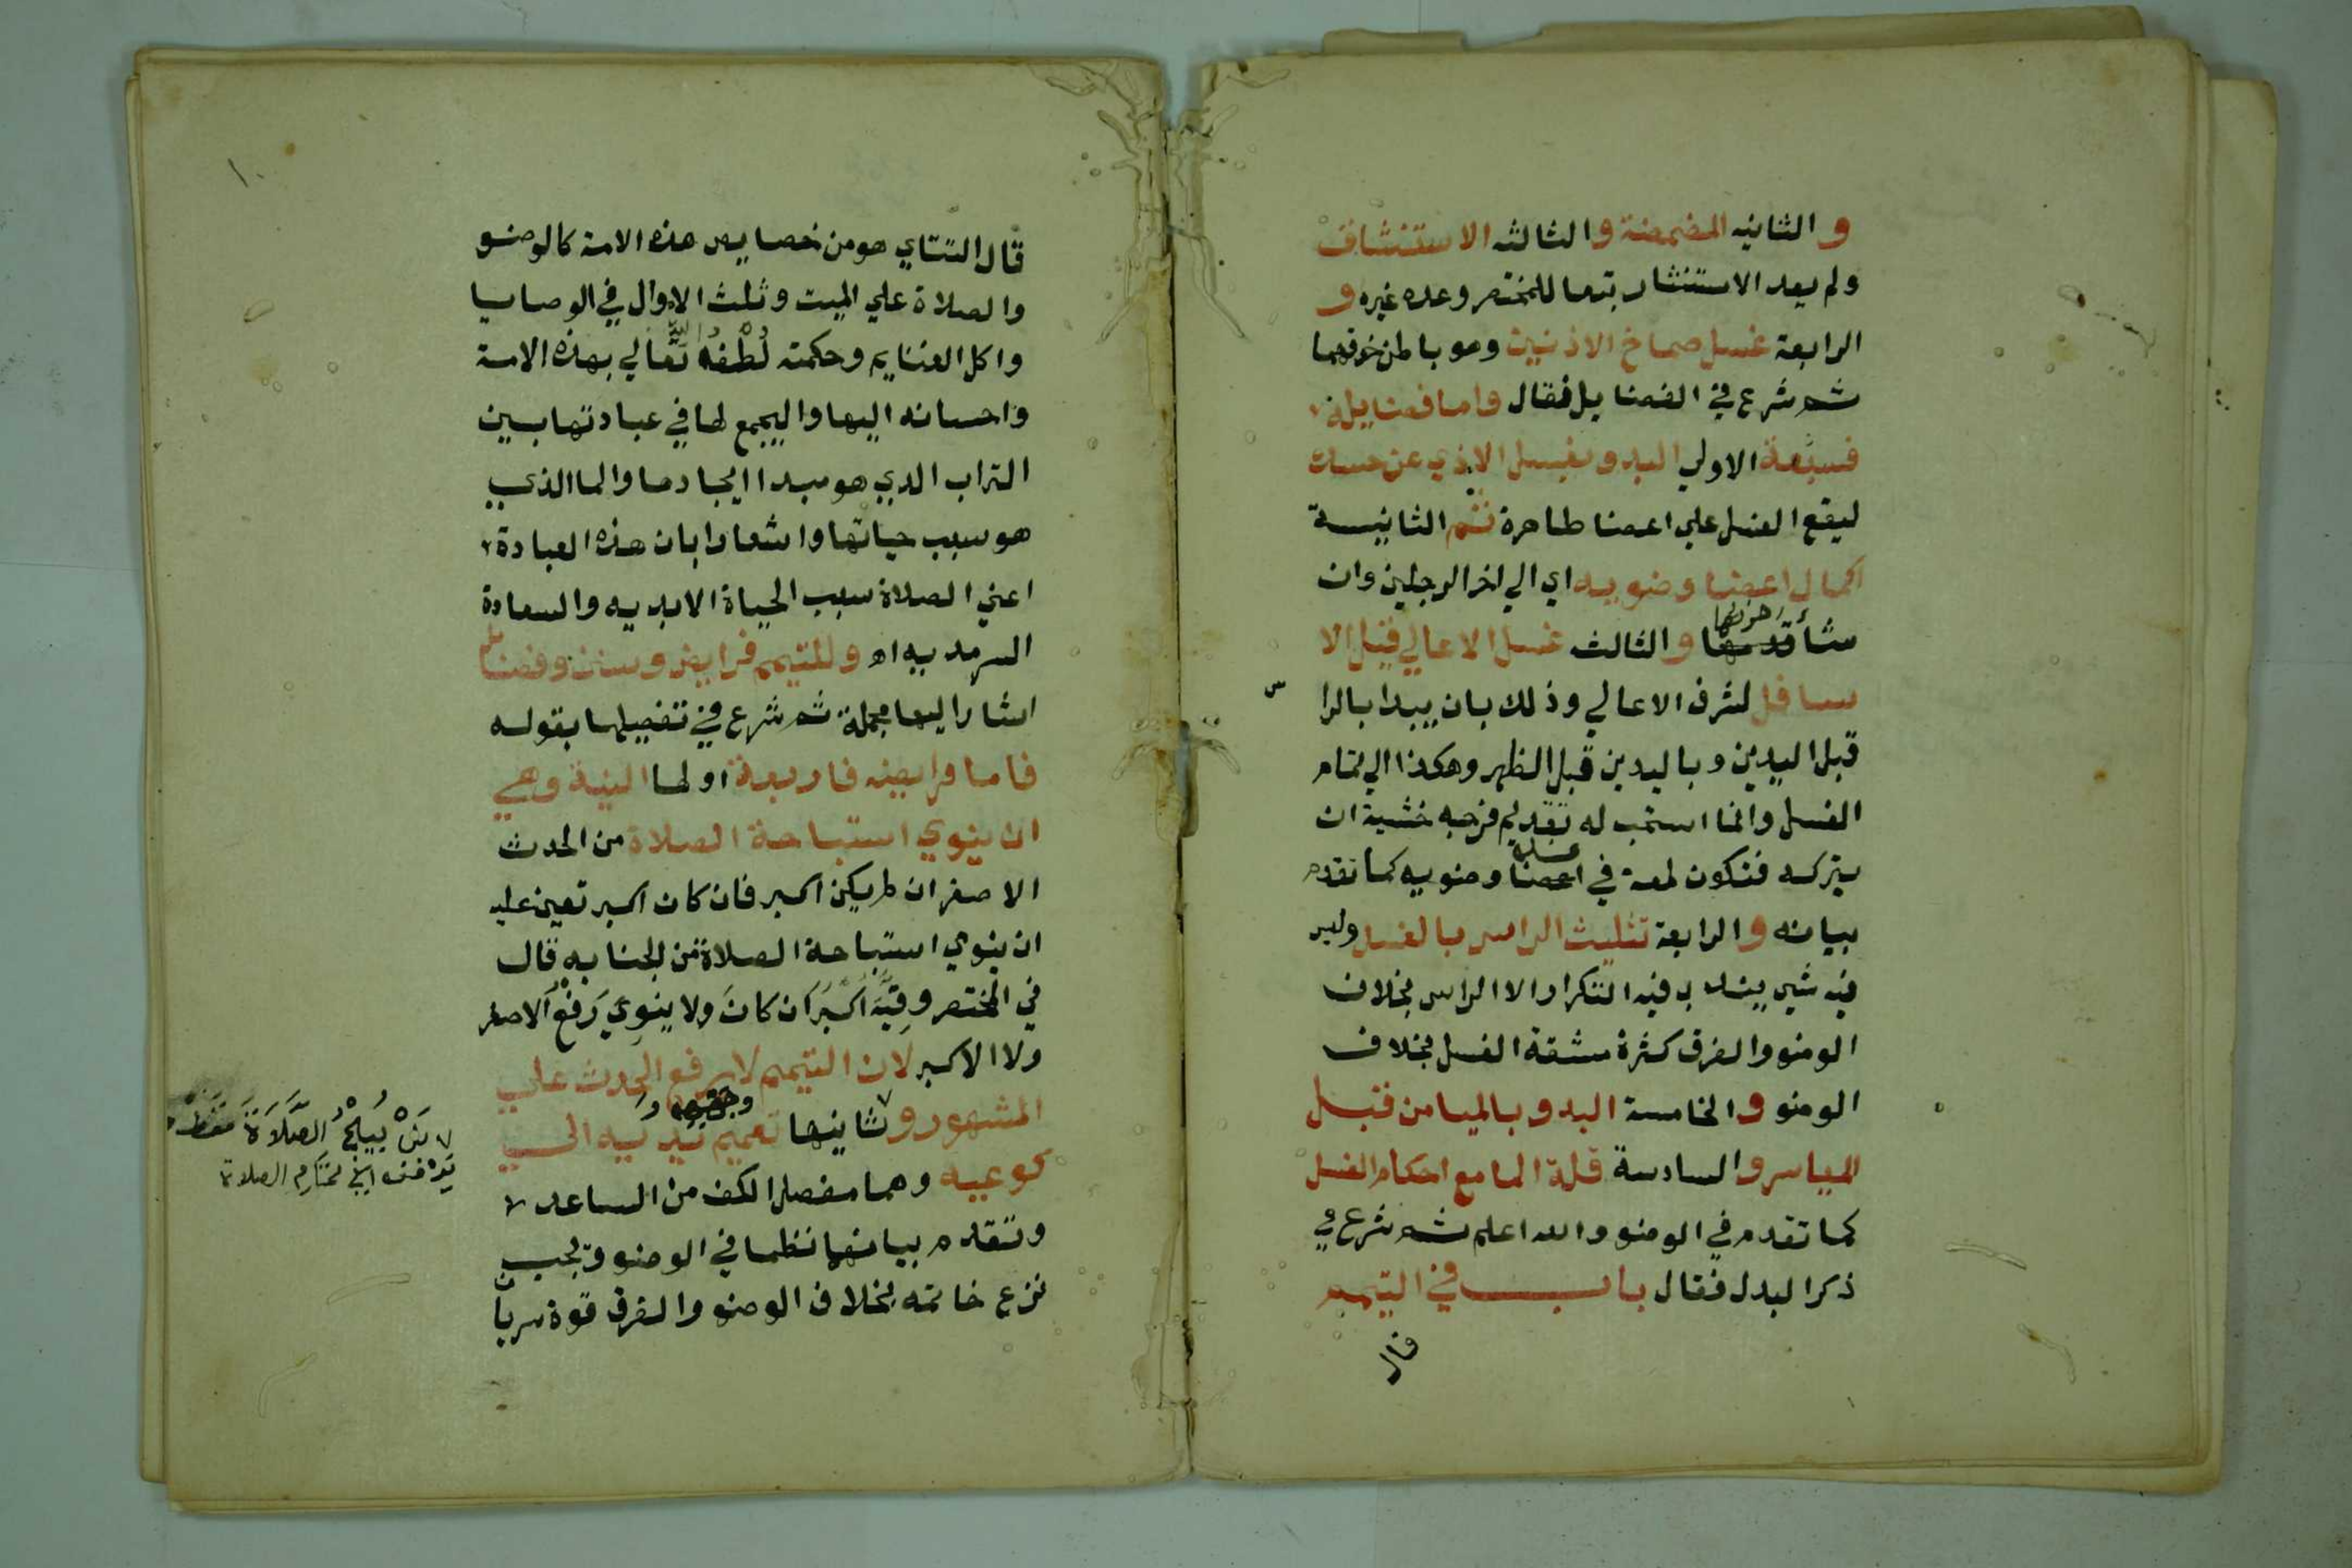 والثانيه المضمضة والثالثه الاستنشاق
ولم يعد الاستنثار تبعا للمختصر وعده غيره و
الرابعة غسل صماخ الاذنين وهو باطن خرقهما
ثم شرع في الفضايل فقال واما فضايله
فستة الاولي البدو بغسل الاذي عن جسده
ليقع الغسل علي اعضا طاهرة ثم الثانية
اكمال اعضا وضويه اي الي اخر الرجلين وان
شأ اخرهما والثالث غسل الاعالي قبل الا
سافل لشرف الاعالي وذلك بان يبدا بالرا
س
قبل اليدين وباليدين قبل الظهر وهكذا الي تمام
الغسل وانما استحب له تقديم فرجه خشية ان
يتركه فتكون لمعة في اعضا وضويه كما تقدم
بيانه والرابعة تثليث الراس بالغسل وليس
فيه شي يندب فيه التكرار الا الراس بخلاف
الوضو والفرق كثرة مشقة الغسل بخلاف
الوضو والخامسة البدو بالميامن قبل
المياسر والسادسة قلة الما مع احكام الغسل
كما تقدم في الوضو والله اعلم ثم شرع في
ذكر البدل فقال باب في التيمم
قال
١٠
قال التتاي هو من خصايص هذه الامة كالوضو
والصلاة علي الميت وثلث الاموال في الوصايا
واكل الغنايم وحكمته لُطْفُهُ تعالي بهذه الامة
واحسانه اليها واليجمع لها في عبادتها بين
التراب الذي هو مبدا ايجادها والما الذي
هو سبب حياتها واشعارا بان هذه العبادة
اعني الصلاة سبب الحياة الابديه والسعادة
السرمديه اه وللتيمم فرايض وسنن وفضايل
اشار اليها مجملة ثم شرع في تفصيلها بقوله
فاما فرايضه فاربعة اولها النية وهي
ان ينوي استباحة الصلاة من الحدث
الاصغر ان لم يكن اكبر فان كان اكبر تعين عليه
ان ينوي استباحة الصلاة من الجنابه قال
في المختصر ونِيَّة اكبَر ان كانَ ولا ينوي رَفْع الاصغر
ولا الاكبر لان التيمم لا يرفع الحدث علي
المشهور وثانيها تعميم وجهه و يديه الي
كوعيه وهما مفصل الكف من الساعد
وتقدم بيانهما نظما في الوضو ويجب
نزع خاتمه بخلاف الوضو والفرق قوة سريان
يُبِيحُ الصَّلَاةَ فَقَط
الصلاة